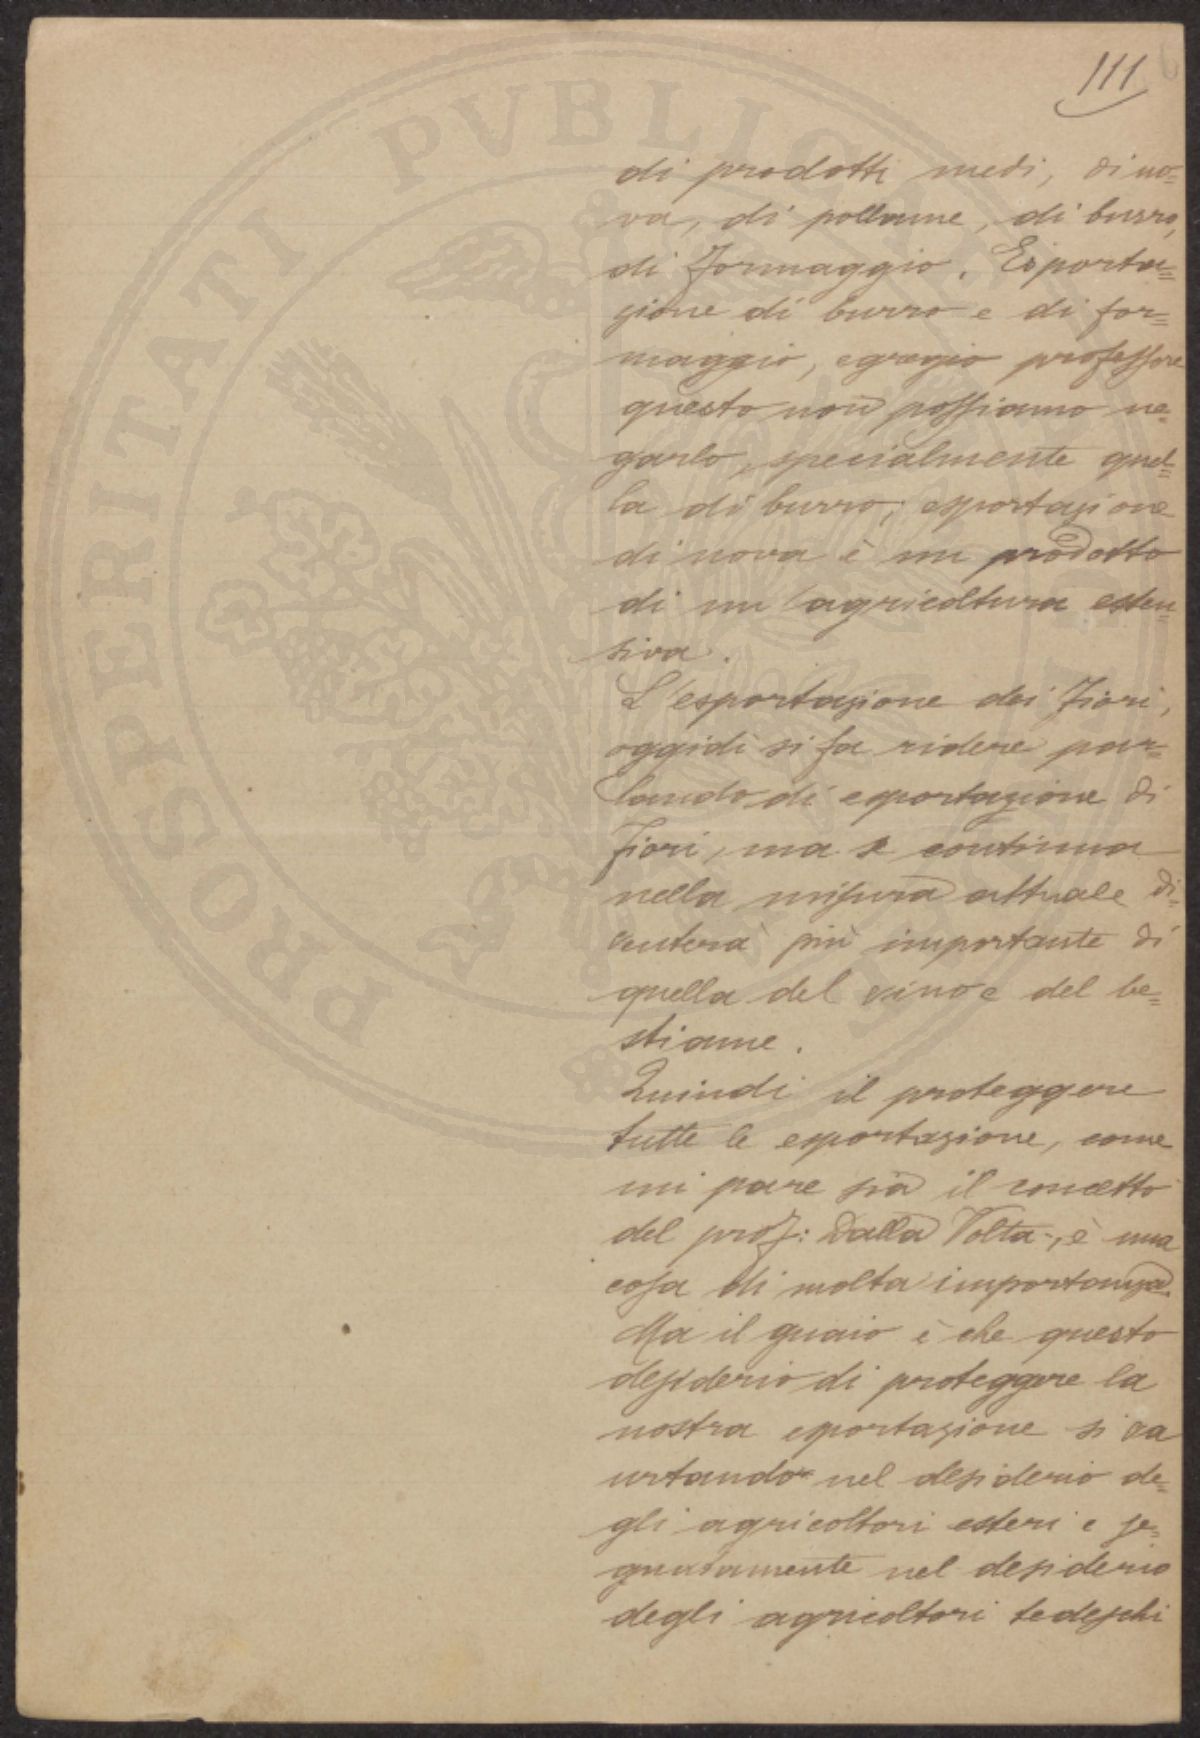 111
di prodotti medi, di uo=
va, di pollame, di burro,
di formaggio. Esporta=
zione di burro e di for=
maggio, egregio professore
questo non possiamo ne=
garlo, specialmente quel=
la di burro; esportazione
di uova è un prodotto
di un'agricoltura esten=
siva.
L'esportazione dei fiori,
oggidì si fa ridere par=
lando di esportazione di
fiori, ma se continua
nella misura attuale di=
venterà più importante di
quella del vino e del be=
stiame.
Quindi il proteggere
tutte le esportazione, come
mi pare sia il concetto
del prof: Dalla Volta, è una
cosa di molta importanza.
Ma il guaio è che questo
desiderio di proteggere la
nostra esportazione si va
urtando nel desiderio de=
gli agricoltori esteri e se=
gnatamente nel desiderio
degli agricoltori tedeschi
PROSPERITATI PVBLICAE